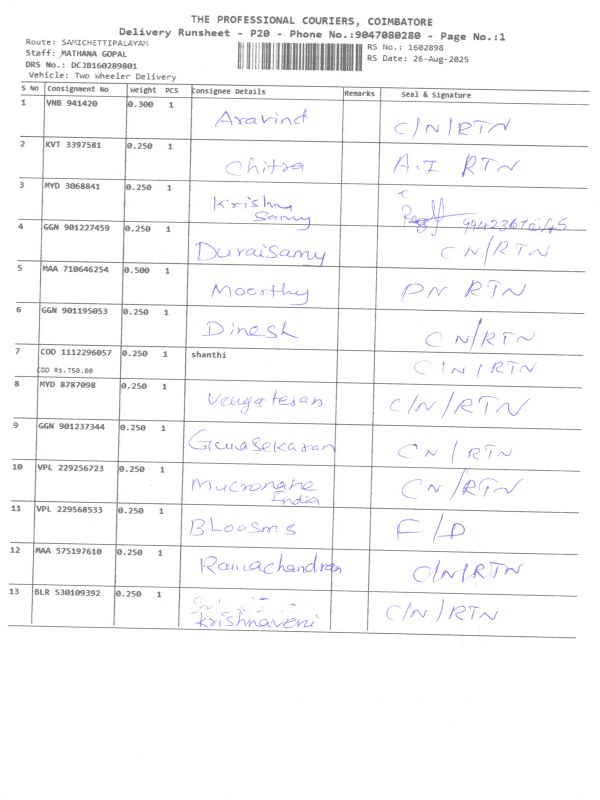 THE PROFESSIONAL COURIERS, COIMBATORE
Delivery Runsheet - P20 - Phone No.:9047080280 - Page No.:1
Route: SAMICHETTIPALAYAM
RS No.: 1602898
Staff: MATHANA GOPAL
RS Date: 26-Aug-2025
DRS No.: DCJB160289801
Vehicle: Two Wheeler Delivery
S No Consignment No Weight PCS Consignee Details Remarks Seal & Signature
1 VNB 941420 0.300 1 Aravind C/N/RTN
2 KVT 3397581 0.250 1 Chitra A.I RTN
3 MYD 3068841 0.250 1 Krishna
Samy
4 GGN 901227459 0.250 1 DuraiSamy CN/RTN
5 MAA 710646254 0.500 1 Moorthy PN RTN
6 GGN 901195053 0.250 1 Dinesh CN/RTN
7 COD 1112296057 0.250 1 shanthi C/N/RTN
COD Rs.750.00
8 MYD 8787098 0.250 1 Vengatesan C/N/RTN
9 GGN 901237344 0.250 1 Gunasekaran CN/RTN
10 VPL 229256723 0.250 1 CN/RTN
India
11 VPL 229568533 0.250 1 BLOOSMS F/D
12 MAA 575197610 0.250 1 Ramachandran C/N/RTN
13 BLR 530109392 0.250 1 Krishnaveni C/N/RTN